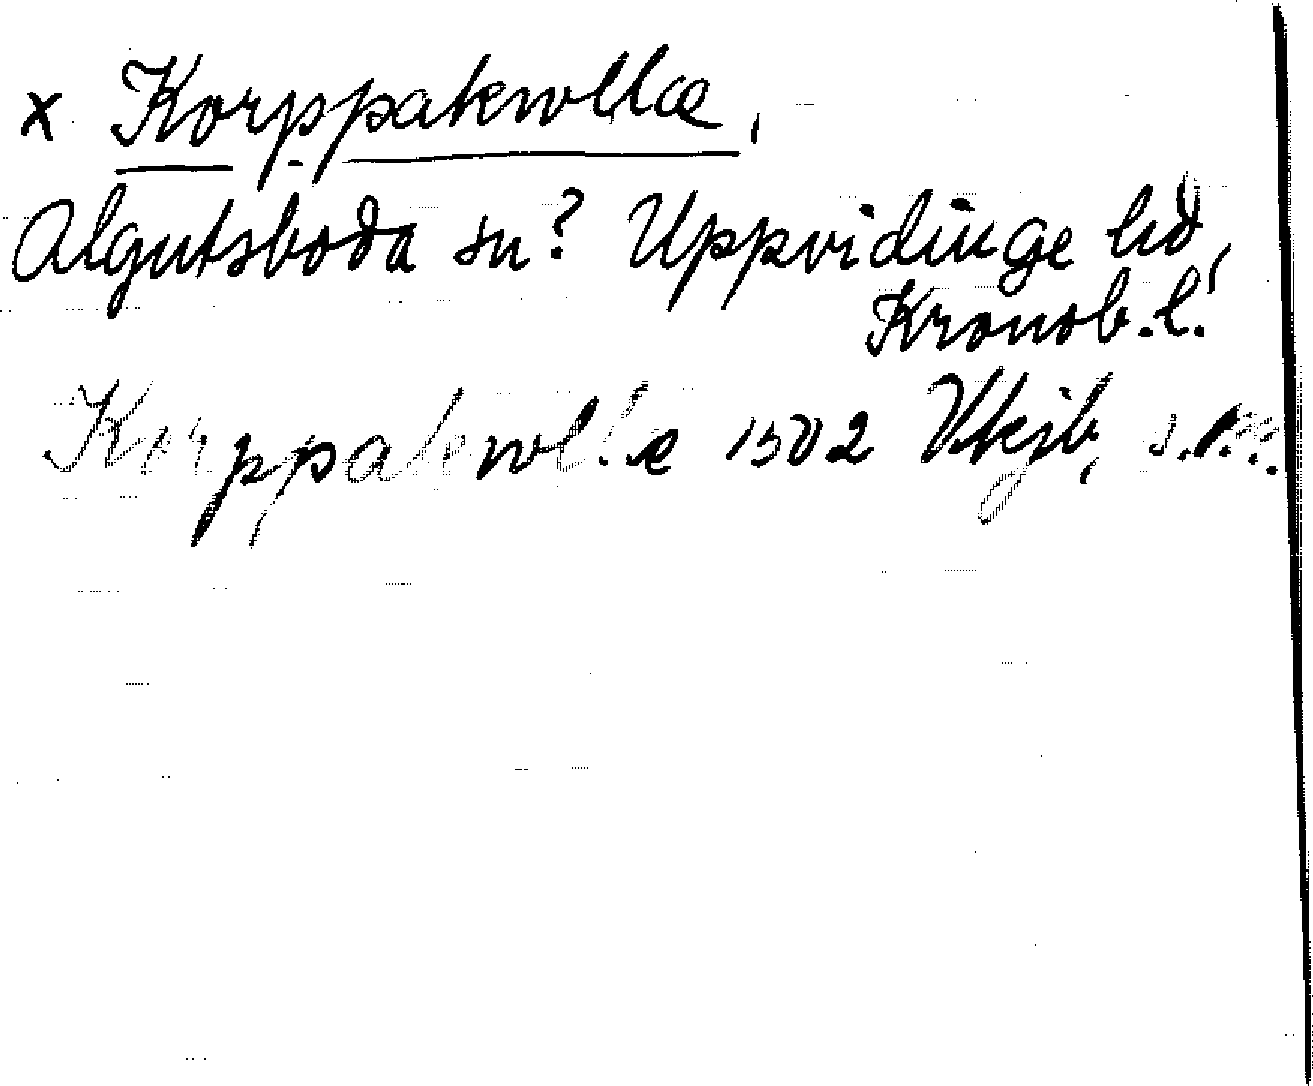 x Korppakwllæ,
Algutsboda sn? Uppvidinge hd,
Kronob. l.
Korppakwllæ 1502 Vkjb,